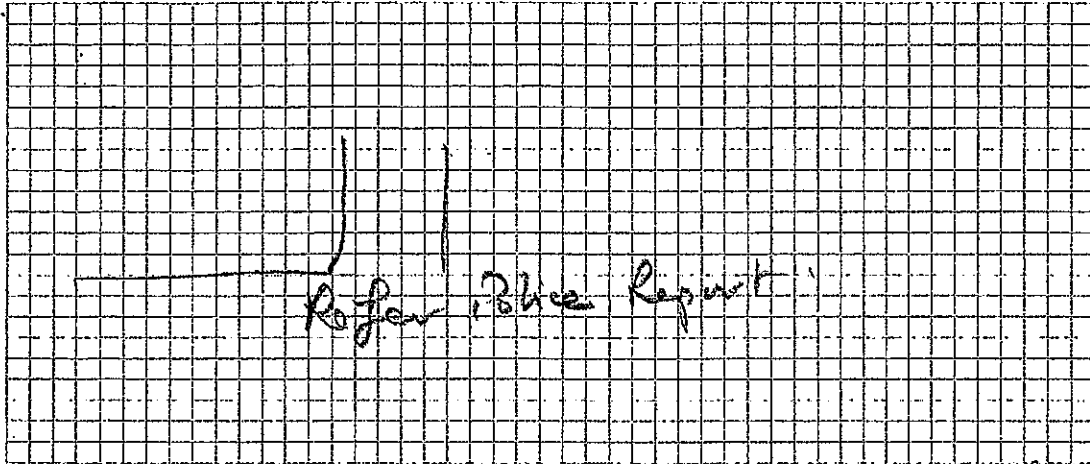 Refer Police Report